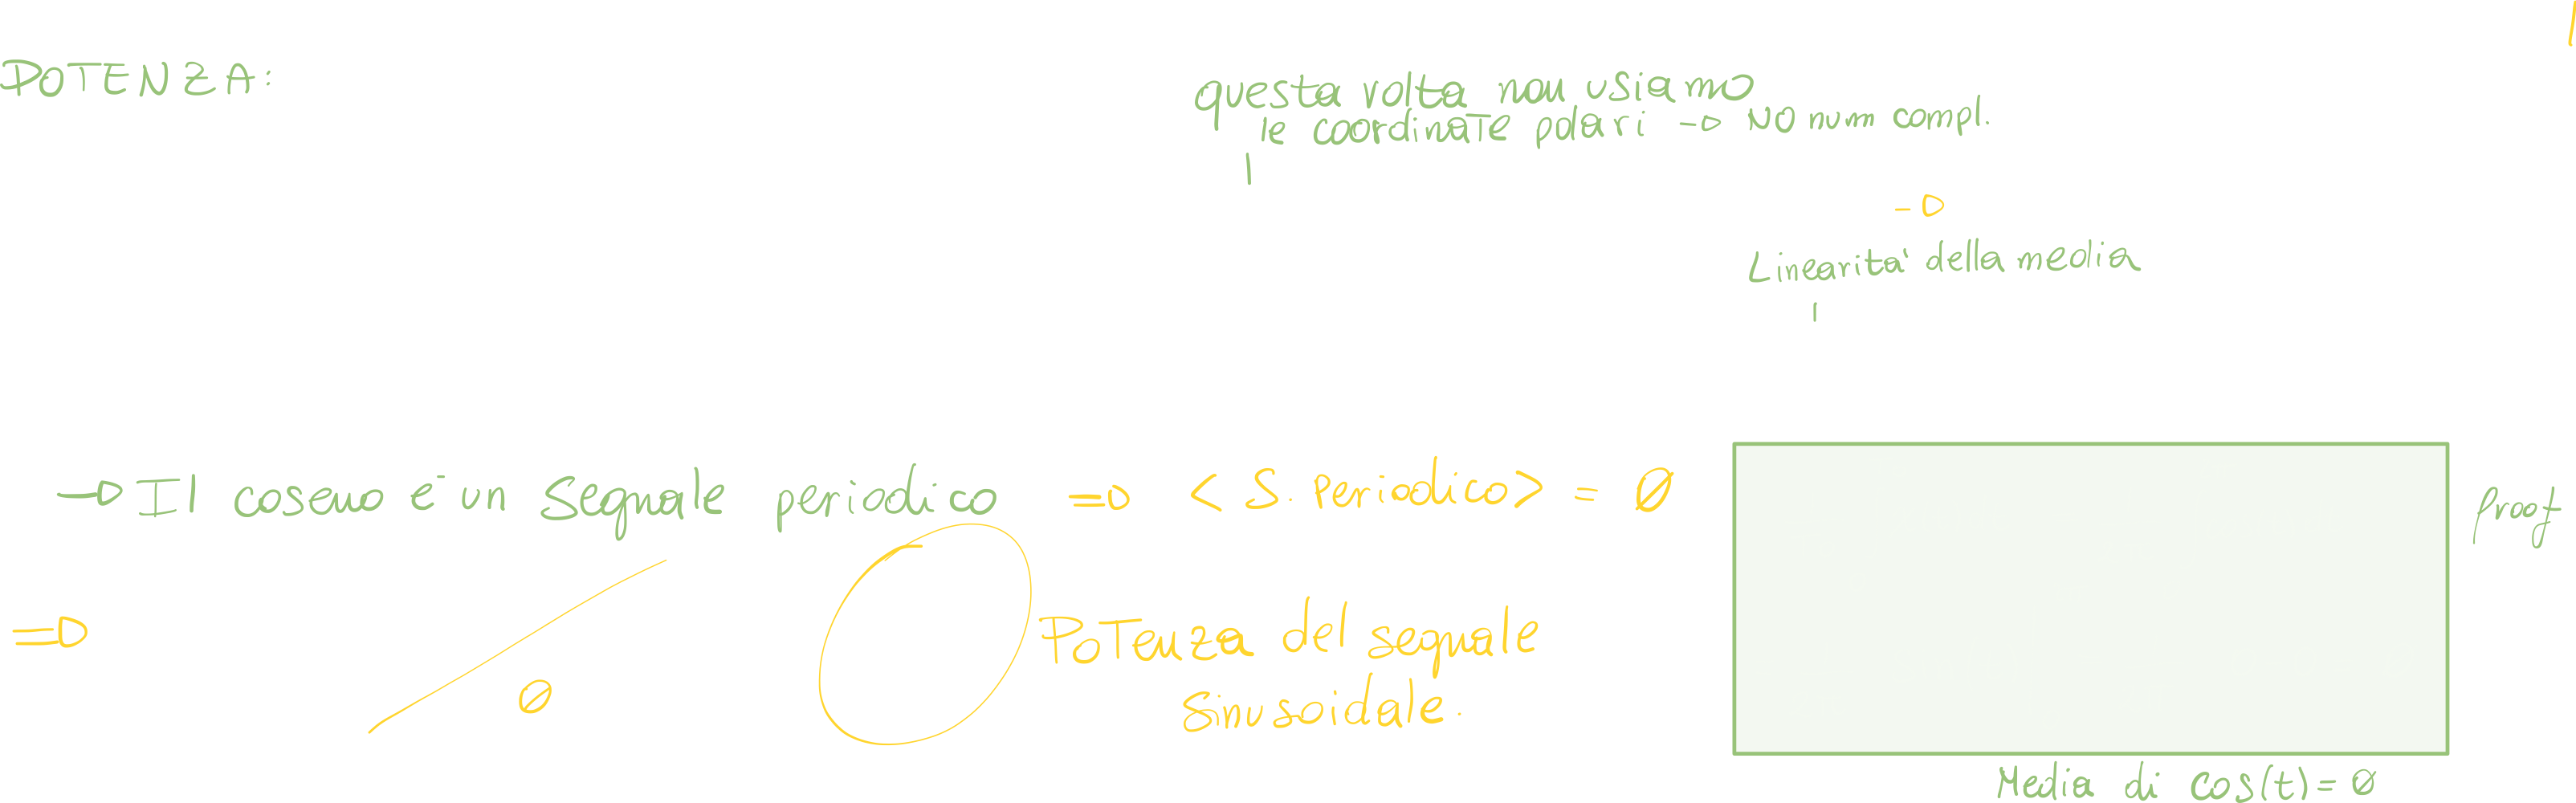 POTENZA:
questa volta non usiamo
le coordinate polari → NO num compl.
→
Linearita' della media
→ Il coseno e' un segnale periodico ⇒ < S. Periodico> = Ø
Proof
⇒ Ø
Potenza del segnale
sinusoidale.
Media di cos(t) = Ø